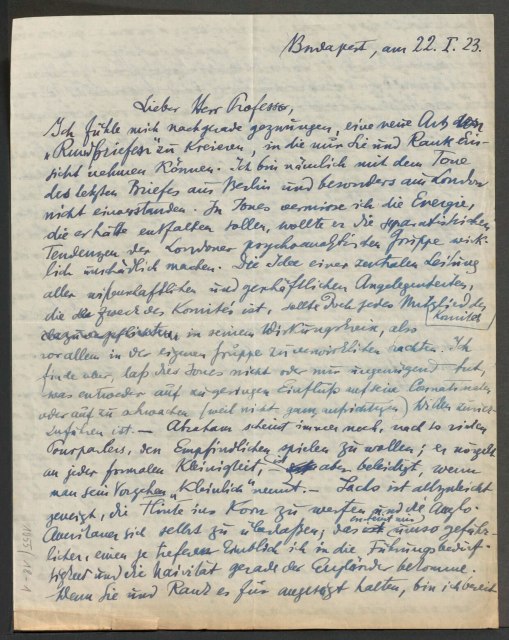 Budapest, am 22. I. 23.
Lieber Herr Professor,
Ich fühle mich nachgerade gezwungen, eine neue Art von
„Rundbriefen" zu kreieren, in die nur Sie und Rank Ein-
sicht nehmen können. Ich bin nämlich mit dem Tone
des letzten Briefes aus Berlin und besonders aus London
nicht einverstanden. In Jones vermisse ich die Energie,
die er hätte entfalten sollen, wollte er die separatistischen
Tendenzen der Londoner psychoanalytischen Gruppe wirk-
lich unschädlich machen. Die Idee einer zentralen Leitung
aller wissenschaftlichen und geschäftlichen Angelegenheiten,
die der Zweck des Komités ist, sollte doch jedes Mitglied des
Komités
in seinem Wirkungskreis, also
vor allem in der eigenen Gruppe zu verwirklichen trachten. Ich
finde aber, daß dies Jones nicht oder nur ungenügend tut,
was entweder auf zu geringen Einfluß auf seine
oder auf zu schwachen (weil nicht ganz aufrichtigen) Willen zurück-
zuführen ist. — Abraham scheint immer noch, nach so vielen
Pourparlers, den Empfindlichen spielen zu wollen; er nörgelt
an jeder formalen Kleinigkeit, ist aber beleidigt, wenn
man sein Vorgehen „kleinlich" nennt. — Sachs ist allzugleich
geneigt, die Flinte ins Korn zu werfen und die Anglo-
Amerikaner sich selbst zu überlassen; das scheint mir umso gefähr-
licher, einen je tieferen Einblick ich in die Führungsbedürf-
tigkeit und die Naivität gerade der Engländer bekomme.
Wenn Sie und Rank es für angezeigt halten, bin ich bereit